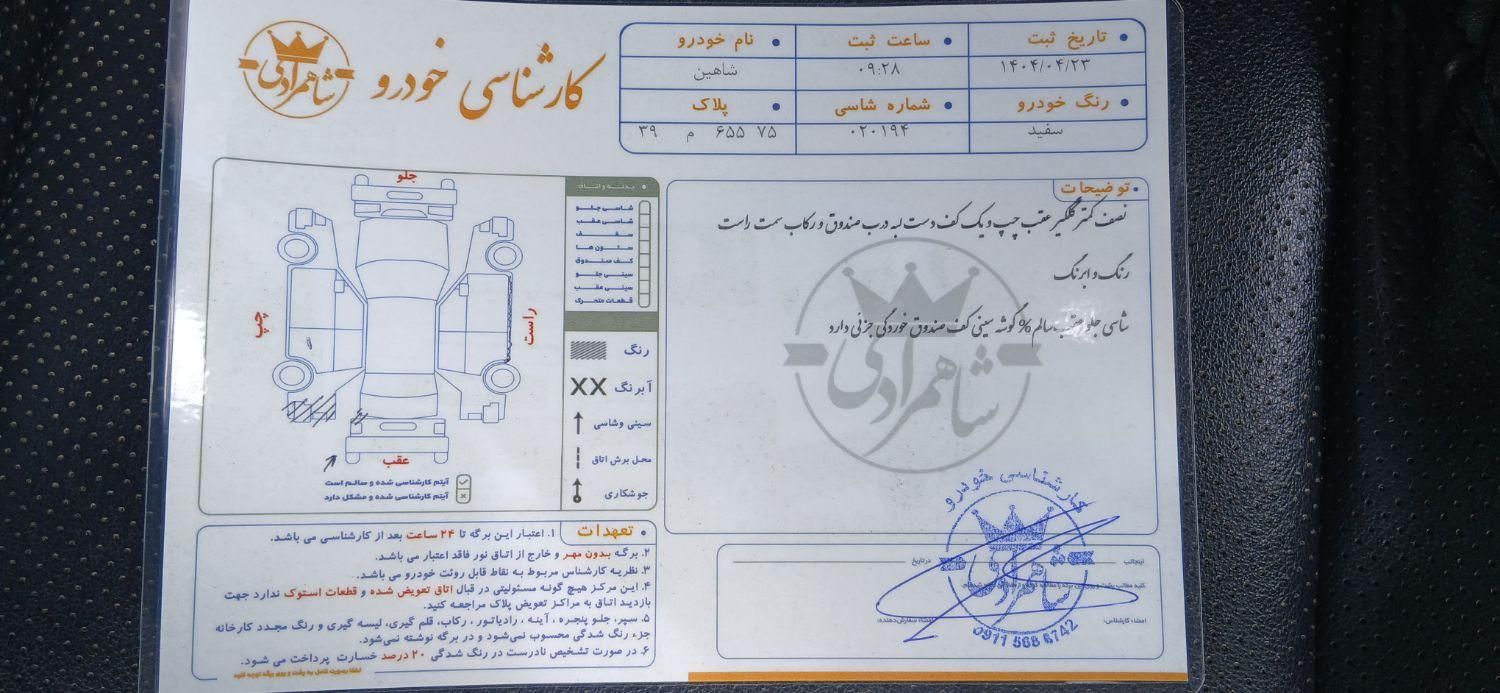 شاهمرادی
کارشناسی خودرو
تاریخ ثبت
ساعت ثبت
نام خودرو
۱۴۰۴/۰۴/۲۳
۰۹:۲۸
شاهین
رنگ خودرو
شماره شاسی
پلاک
سفید
۰۲۰۱۹۴
۷۵ ۶۵۵ م ۳۹
توضیحات
نصف کمتر گلگیر عقب چپ و یک کف دست لبه درب صندوق و رکاب سمت راست
رنگ و ابرنگ
شاسی جلو عقب سالم % گوشه سینی کف صندوق خوردگی جزئی دارد
شاهمرادی
بدنه و اتاق
شاسی جلو
شاسی عقب
سقف
ستون ها
کف صندوق
سینی جلو
سینی عقب
قطعات متحرک
رنگ
آبرنگ
سینی وشاسی
محل برش اتاق
جوشکاری
جلو
چپ
راست
عقب
آیتم کارشناسی شده و سالم است
آیتم کارشناسی شده و مشکل دارد
تعهدات
۱. اعتبار این برگه تا ۲۴ ساعت بعد از کارشناسی می باشد.
۲. برگه بدون مهر و خارج از اتاق نور فاقد اعتبار می باشد.
۳. نظریه کارشناس مربوط به نقاط قابل روئت خودرو می باشد.
۴. این مرکز هیچ گونه مسئولیتی در قبال اتاق تعویض شده و قطعات استوک ندارد جهت
بازدید اتاق به مراکز تعویض پلاک مراجعه کنید.
۵. سپر، جلو پنجره ، آینه ، رادیاتور ، رکاب، قلم گیری، لیسه گیری و رنگ مجدد کارخانه
جزء رنگ شدگی محسوب نمی‌شود و در برگه نوشته نمی‌شود.
۶. در صورت تشخیص نادرست در رنگ شدگی ۲۰ درصد خسارت پرداخت می شود.
لطفا بصورت کامل به پشت و روی برگه توجه کنید
اینجانب
در تاریخ
امضاء کارشناس:
امضاء سفارش‌دهنده:
کارشناسی خودرو
شاهمرادی
0911 568 6742